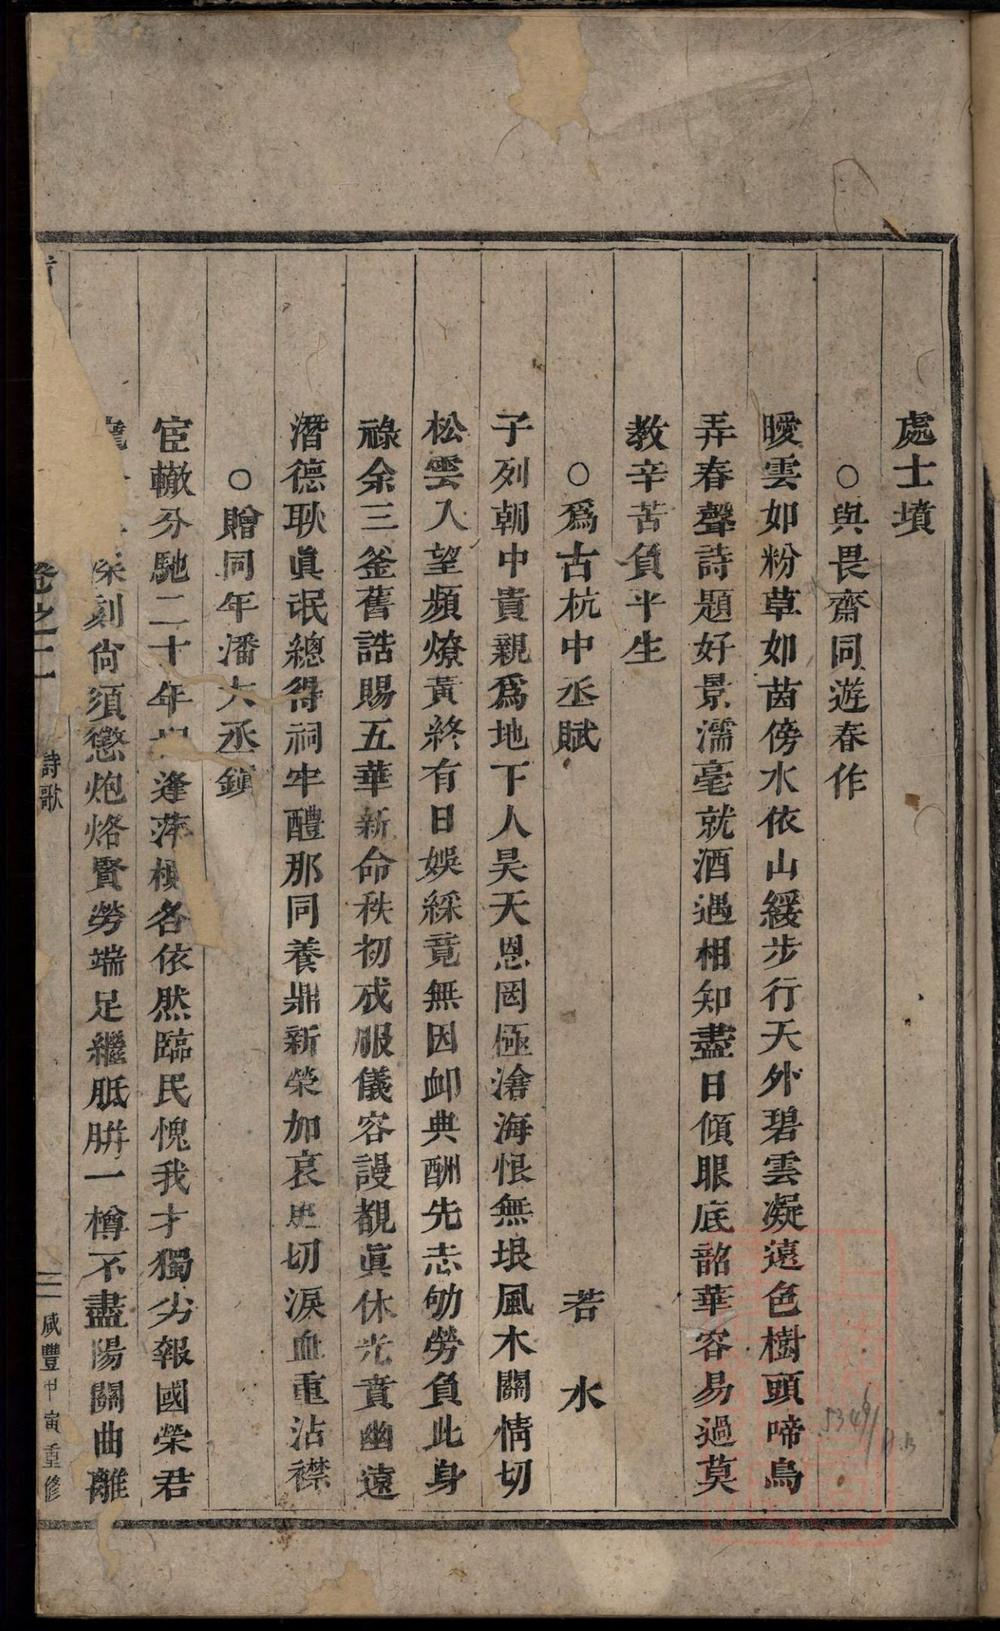 處士墳
○與畏齋同遊春作
曖雲如粉草如茵傍水依山緩步行天外碧雲凝遠色樹頭啼鳥
弄春聲詩題好景濡毫就酒遇相知盡日傾眼底韶華容易過莫
教辛苦負平生
○爲古杭中丞賦 若水
子列朝中貴親爲地下人昊天恩罔極滄海恨無垠風木關情切
松雲入望頻燎黃終有日娛綵竟無因卹典酬先志劬勞負此身
祿余三釜舊誥賜五華新命秩初成服儀容謾覩眞休光賁幽遠
潛德耿眞泯總得祠牢醴那同養鼎新榮加哀思切淚血重沾襟
○贈同年潘大丞鎮
宦轍分馳二十年 逢萍 各依然臨民愧我才獨劣報國榮君
深刻尙須懲炮烙賢勞端足繼胝胼一樽不盡陽關曲離
卷之二 詩歌 咸豐甲寅重修